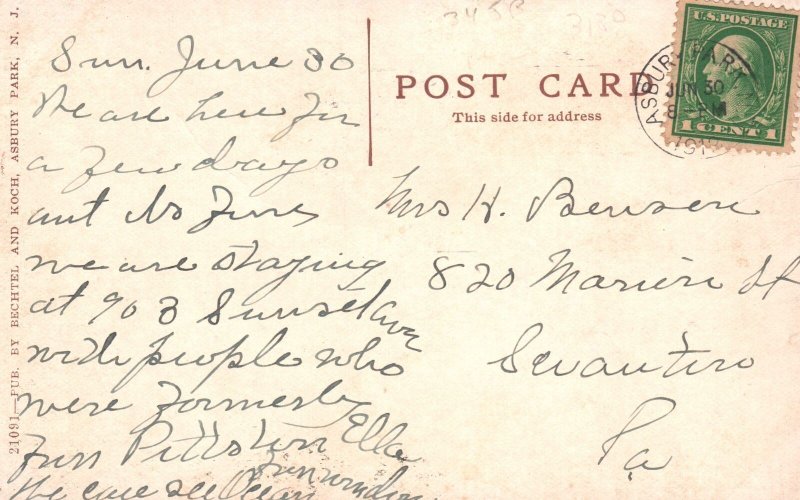 POST CARD
This side for address
U.S. POSTAGE
1 CENT 1
ASBURY PARK
JUN 30
8 - PM
21091 - PUB. BY BECHTEL AND KOCH, ASBURY PARK, N. J.
Sun. June 30
We are here for
a few days
We are staying
at 903 Sunset ave
with people who
were formerly
from Pittston Ella
We can see Ocean
from window
Mrs H. Bensen
820 Marion St
Scranton
Pa